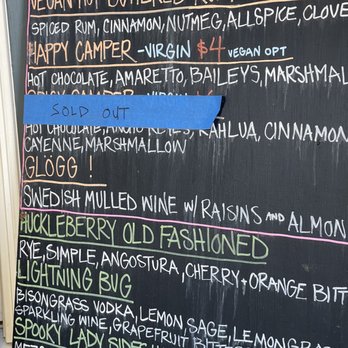 VEGAN HOT BUTTERED RUM
SPICED RUM, CINNAMON, NUTMEG, ALLSPICE, CLOVE
HAPPY CAMPER -VIRGIN $4 VEGAN OPT
HOT CHOCOLATE, AMARETTO, BAILEYS, MARSHMAL
SOLD OUT
HOT CHOCOLATE, ANCHO REYES, KAHLUA, CINNAMON
CAYENNE, MARSHMALLOW
GLÖGG !
SWEDISH MULLED WINE W/ RAISINS AND ALMON
HUCKLEBERRY OLD FASHIONED
RYE, SIMPLE, ANGOSTURA, CHERRY + ORANGE BITT
LIGHTNING BUG
BISONGRASS VODKA, LEMON, SAGE, LEMONGRAS
SPARKLING WINE, GRAPEFRUIT BITTERS
SPOOKY LADY